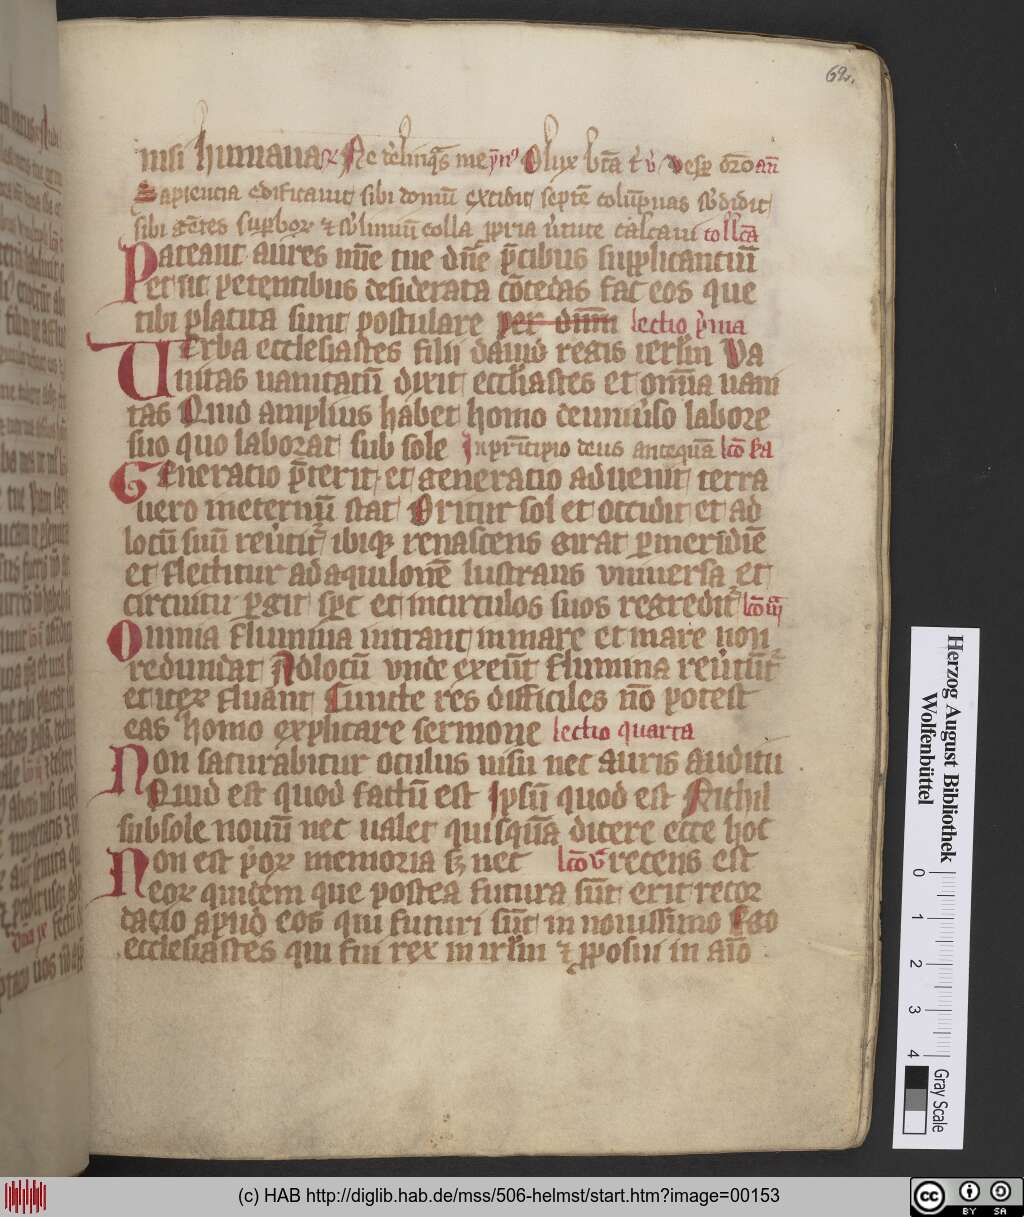 62.
nisi humana R Ne reliñqs me ẏmꝰ O lux bt̄a t̄ v̓ vesꝑ or̄o añ
Sapiencia edificauit sibi domū excidit septē colūpnas s̓bdidit
sibi gētes suꝑboꝝ ⁊ s̓blimiū colla ꝓpria v̓tute calcauit coll̄ca
Pateant aures mīe tue dn̄e p̄cibus supplicantiū
et ut petentibus desiderata cōcedas fac eos que
tibi placita sunt postulare per dn̄m lectio p̓ma
Uerba ecclesiastes filii dauid regis ierlm̄ Va
nitas uanitatū dixit eccl̄iastes et om̄ia uani
tas Quid amplius habet homo de uniu̓so labore
suo quo laborat sub sole In pr̄incipio deus antequā lc̄o s̄a
Generatio p̄terit et generatio aduenit terra
uero in eternū stat Oritur sol et occidit et ad
locū suū reu̓tit̄ ibiqꝫ renascens girat ꝑ meridiē
et flectitur ad aquilonē lustrans vniuersa et
circuitu ꝑgit sp̄c et in circulos suos regredit̄ lc̄o iij
Omnia flumina intrant in mare et mare non
redundat Ad locū vnde exeūt flumina reu̓tūt̄
et iteꝝ fluant Cuncte res difficiles nō potest
eas homo explicare sermone lectio quarta
Non saturabitur oculus uisu nec auris auditu
Quid est quod factū est Ipsū quod est Nichil
sub sole nouū nec ualet quisquā dicere ecce hoc
Non est p̓oꝝ memoria sꝫ nec lc̄o v recens est
eoꝝ quidem que postea futura sūt erit recor
dacio apud eos qui futuri sūt in nouissimo Ego
ecclesiastes qui fui rex in irl̄m ⁊ ꝓposui in aīo
Herzog August Bibliothek
Wolfenbüttel
0 1 2 3 4
Gray Scale
(c) HAB http://diglib.hab.de/mss/506-helmst/start.htm?image=00153
cc BY SA